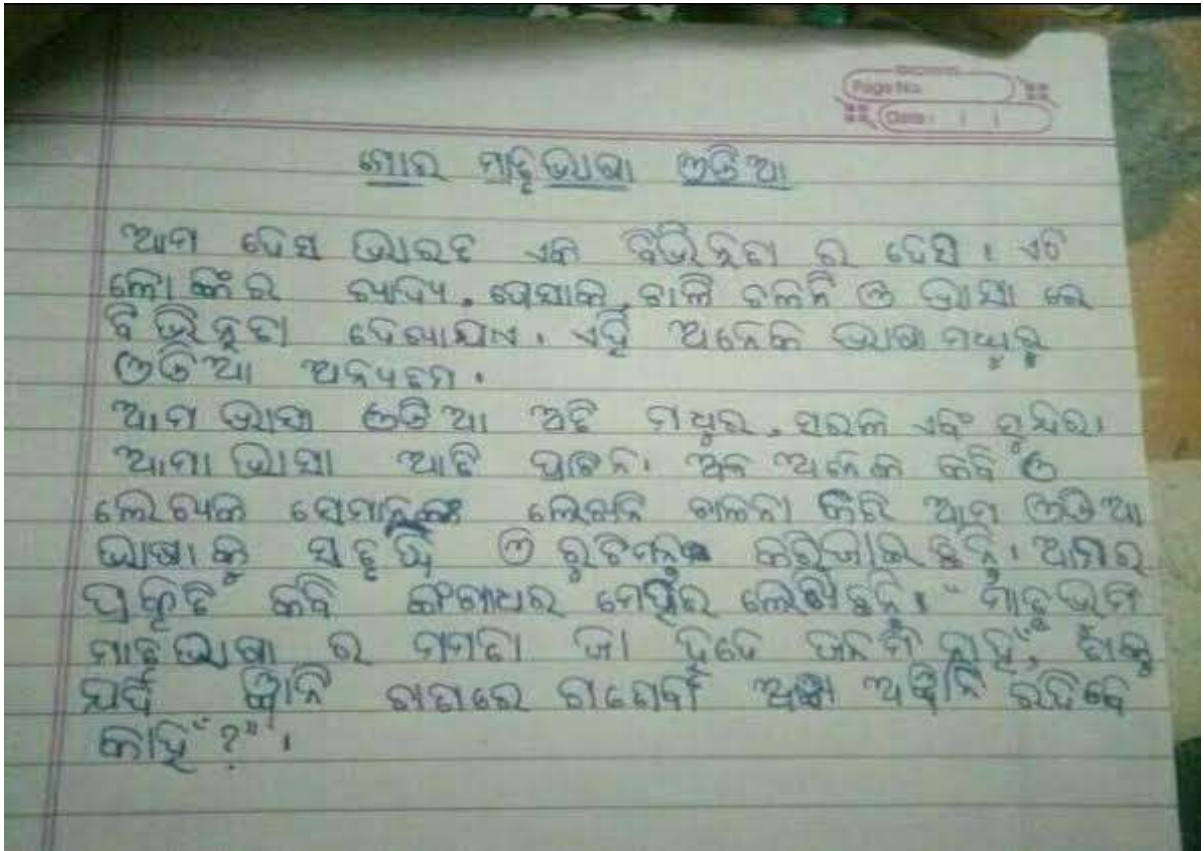 Page No.
Date :
ମୋର ମାତୃଭାଷା ଓଡିଆ
ଆମ ଦେଶ ଭାରତ ଏକ ବିଭିନ୍ନତା ର ଦେଶ । ଏଠି
ଲୋକଙ୍କ ର ଖାଦ୍ୟ, ପୋଷାକ, ଚାଲି ଚଳନି ଓ ଭାଷା ରେ
ବିଭିନ୍ନତା ଦେଖାଯାଏ । ଏହି ଅନେକ ଭାଷା ମଧ୍ୟରୁ
ଓଡିଆ ଅନ୍ୟତମ ।
ଆମ ଭାଷା ଓଡିଆ ଅତି ମଧୁର, ସରଳ ଏବଂ ସୁନ୍ଦର।
ଆମ ଭାଷା ଅତି ପ୍ରାଚୀନ। ଅନେକ କବି ଓ
ଲେଖକ ସେମାନଙ୍କ ଲେଖନି ଚାଳନା କରି ଆମ ଓଡିଆ
ଭାଷା କୁ ଓ କରିଯାଇଛନ୍ତି। ଆମର
ପ୍ରକୃତି କବି ଗଂଗାଧର ମେହେର ଲେଖିଛନ୍ତି। "ମାତୃଭୂମି
ମାତୃଭାଷା ର ମମତା ଜା ହୃଦେ ଜନମି ନାହିଁ, ତାଙ୍କୁ
ଯଦି ଜ୍ଞାନି ଅଜ୍ଞାନି ରହିବେ
କାହିଁ ?"।